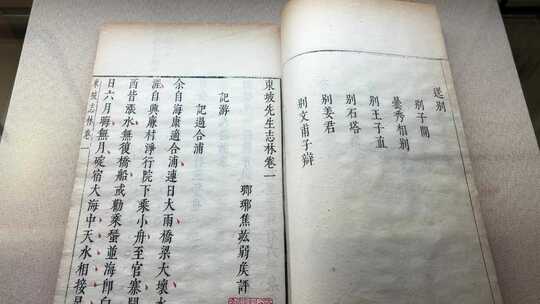 送別
別子開
曇秀相別
別王子直
別石塔
別姜君
別文甫子辯
東坡先生志林卷一
瑯琊焦竑弱矦評
記游
記過合浦
余自海康適合浦連日大雨橋梁大壞水
涯自興廉村淨行院下乘小舟至官寨聞
西皆漲水無復橋船或勸乘蜑並海即白
日六月晦無月碇宿大海中天水相接星
東坡志林卷一